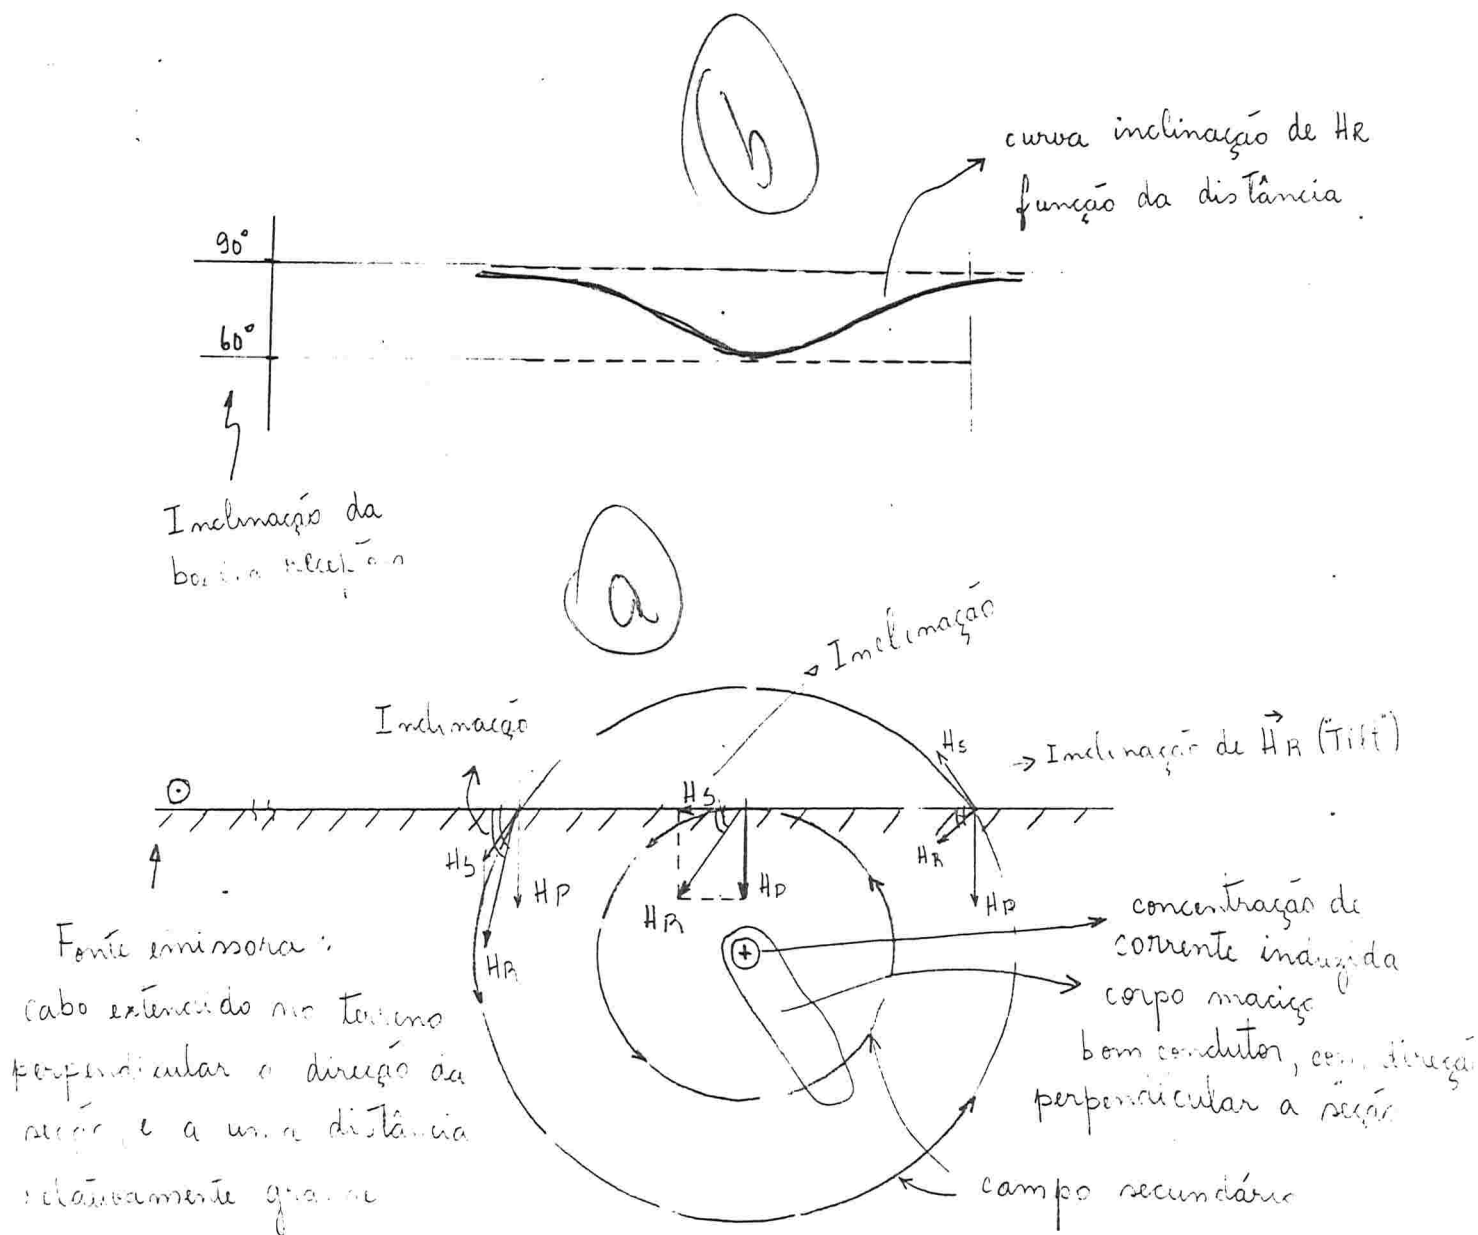 b
curva inclinação de HR
função da distância
90°
60°
Inclinação da
recepção
a
Inclinação
Inclinação
Inclinação de HR ("Tilt")
HS
HS
HS
HP
HR
HR
HP
HR
HP
Fonte emissora:
cabo extencido no terreno
perpendicular a direção da
seção, e a uma distância
relativamente grande
concentração de
corrente induzida
corpo maciço
bom condutor, com direção
perpendicular a seção
campo secundário